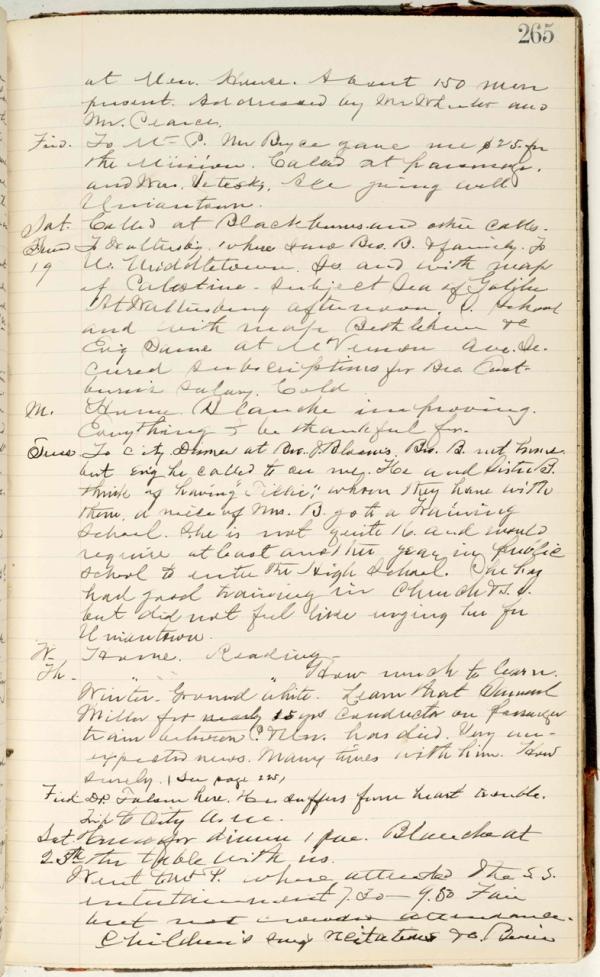 265
at Un. House. About 150 men
present. Addressed by Mr Wheeler and
Mr. Pearce.
Frid. To Mt P. Mr Bryce gave me $25. for
the Mission. Called at parsonage,
and Wm. All going well
Uniontown.
Sat. Called at Blackburns and other calls.
Sund To where saw Bro. B. & family. To
19 W. Middletown. S.S. and with map
of Palestine - subject Sea of Galilee
At afternoon S. School
and with map Bethlehem &c
Evg Same at Mt Vernon Ave. Se-
cured subscriptions for Bro. East-
burn's salary. Cold.
M. Home. Blanche improving.
Everything to be thankful for.
Tues To City Dinner at Bro. J. Bloom's. Bro. B. not home
but Evg he called to see me. He and Sister B.
think of having "Tillie," whom they have with
them, a niece of Mrs. B. go to a Training
School. She is not quite 16. and would
require at least another year in public
school to enter the High School. She has
had good training in Church & S.S.
but did not feel like urging her for
Uniontown.
W. Home. Reading.
Th. " " How much to learn.
Winter. Ground white. Learn that Samuel
Miller for nearly 15 yrs conductor on passenger
train between has died. Very un-
expected news. Many times with him. How
surely. (See page 225)
Frid Dr. Folsom here. He suffers from heart trouble.
Trip to City
Sat Home for dinner 1 p.m. Blanche at
25th the table with us.
Went to Mt P. where attended the S.S.
entertainment 7.30 - 9.30 Fair
but not crowded attendance.
Children's song recitations &c.